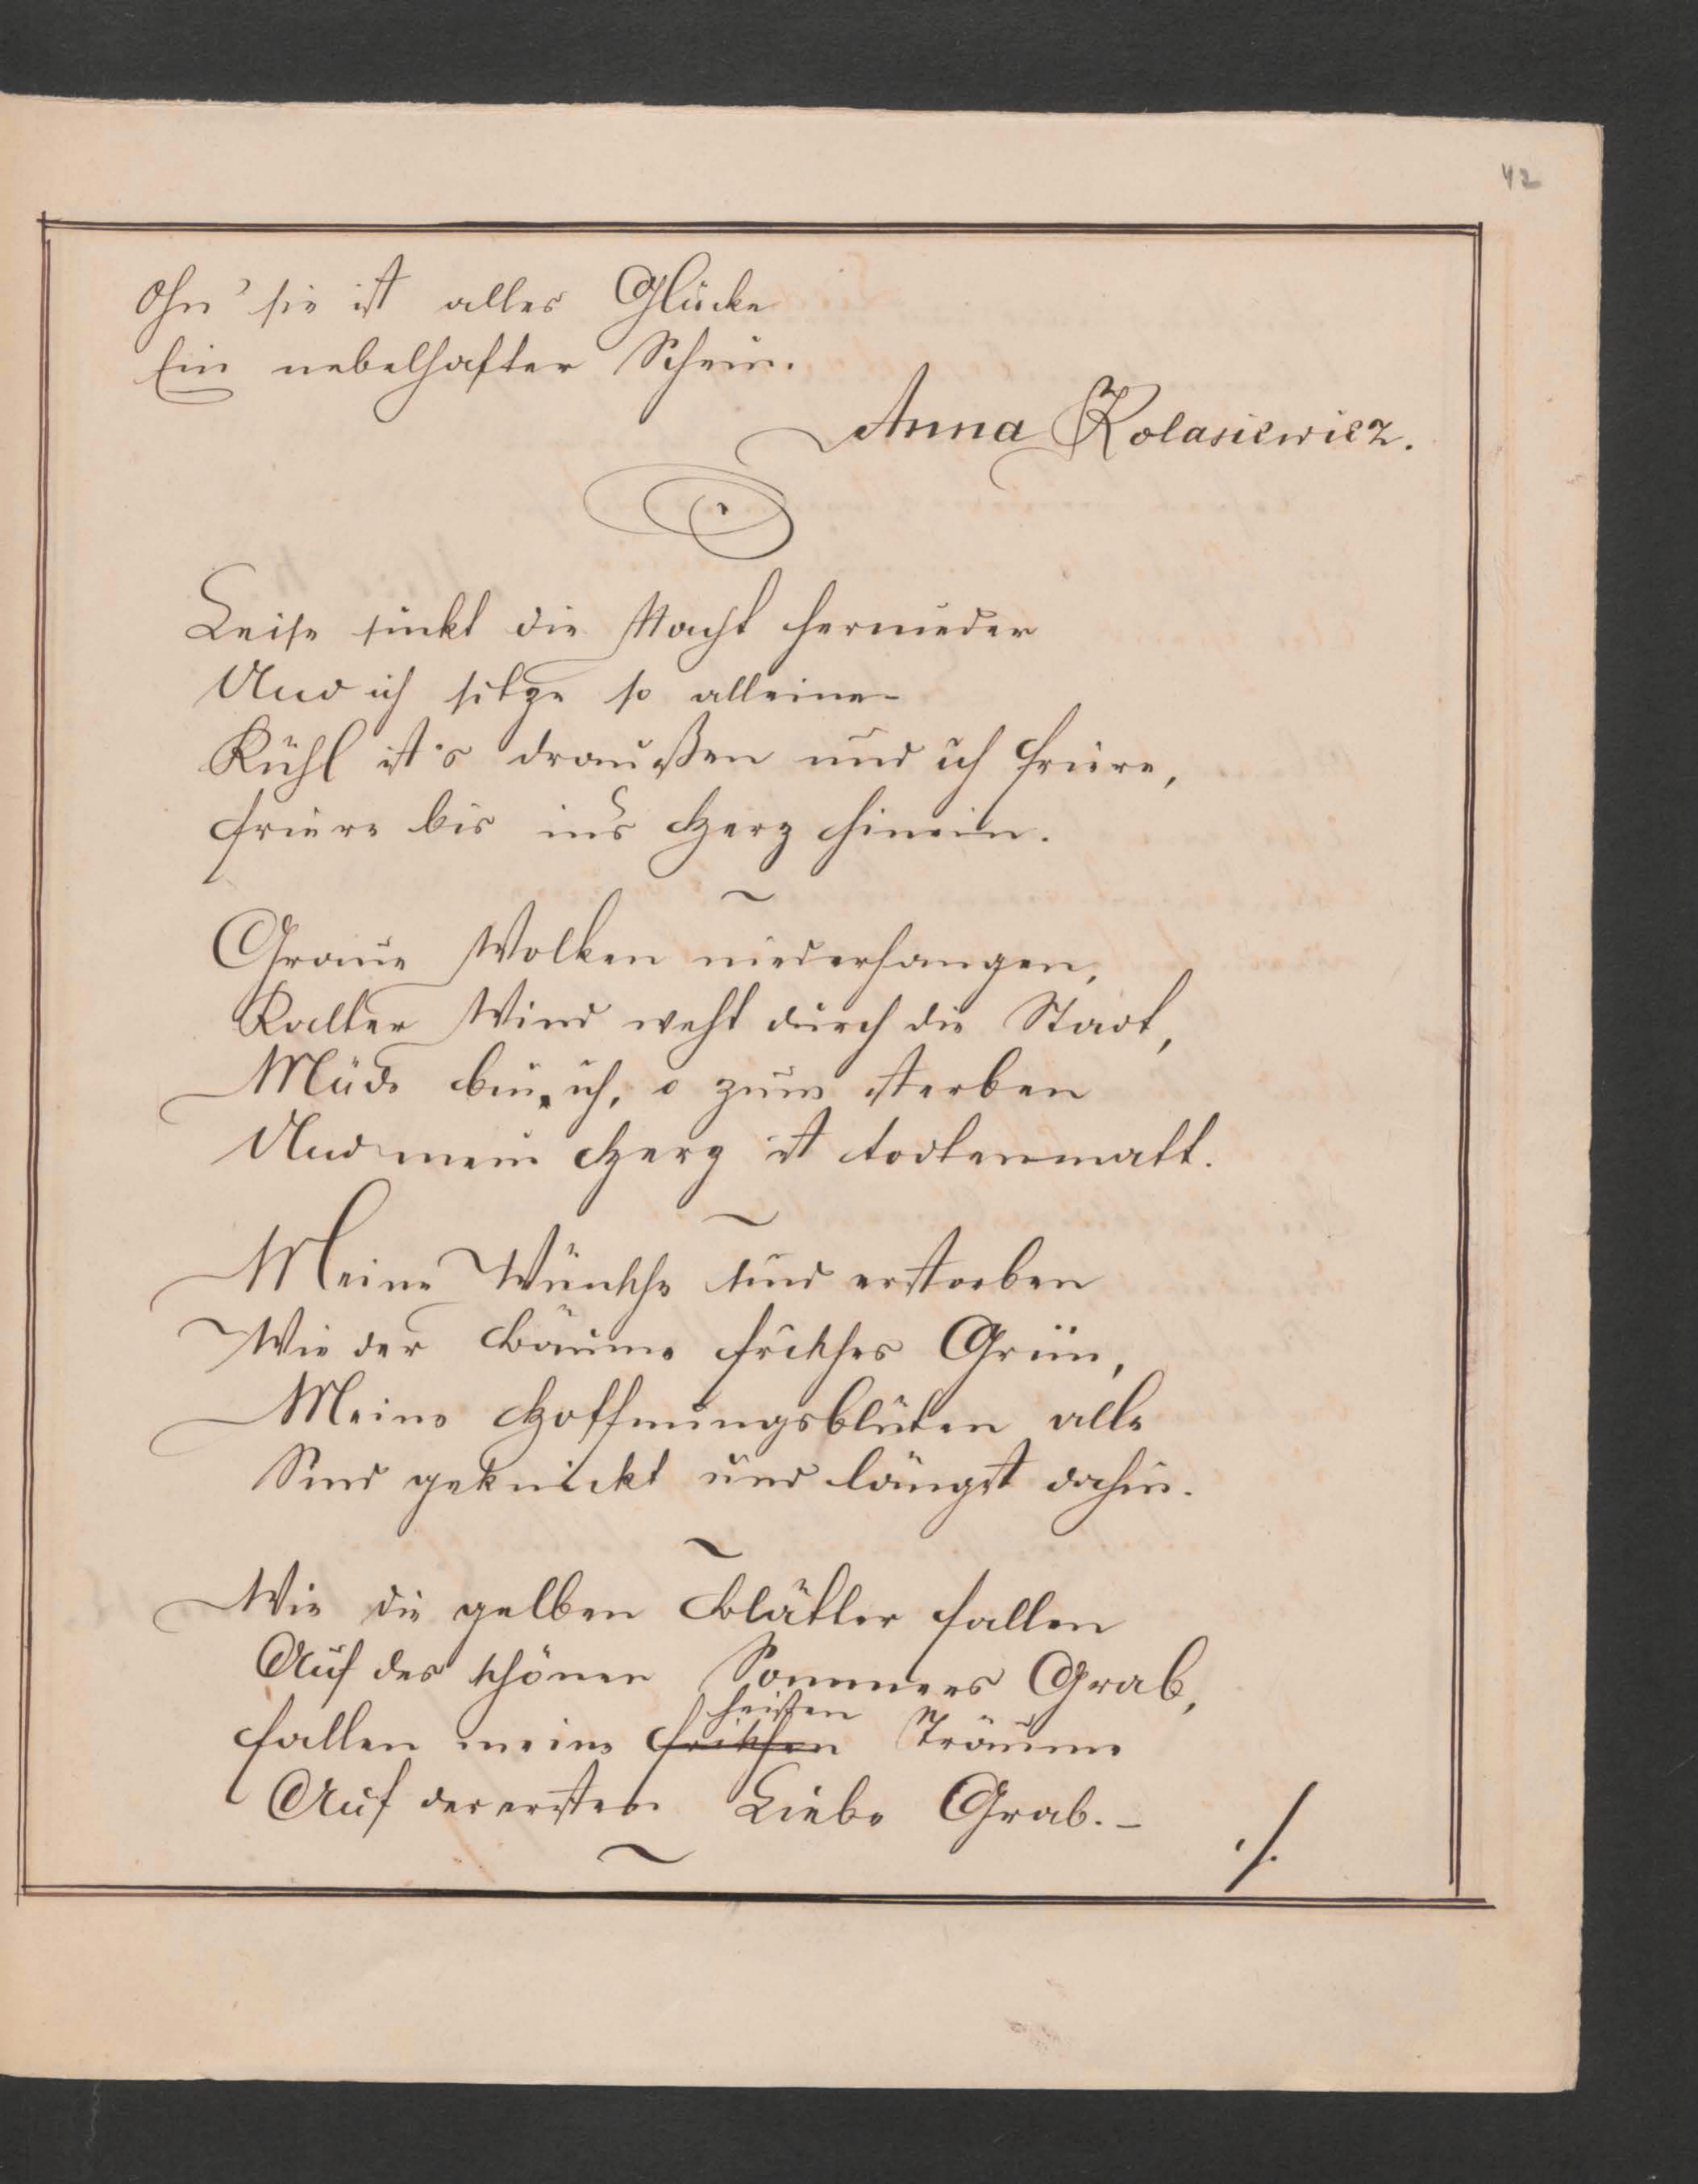 42
Ohn' sie ist alles Glücke
Ein nebelhafter Schein.
Anna Kolasiewicz.
Leise sinkt die Nacht hernieder
Und ich sitze so alleine
Kühl ist's draußen und ich friere,
friere bis ins Herz hinein.
~
Graue Wolken niederhangen,
Kalter Wind weht durch die Stadt,
Müde bin ich, o zum sterben
Und mein Herz ist todtenmatt.
~
Meine Wünsche sind erstorben
Wie der Bäume frisches Grün,
Meine Hoffnungsblüten alle
Sind geknickt und längst dahin.
~
Wie die gelben Blätter fallen
Auf des schönen Sommers Grab,
heißen
fallen meine frischen Träume
Auf der ersten Liebe Grab. –
~
./.